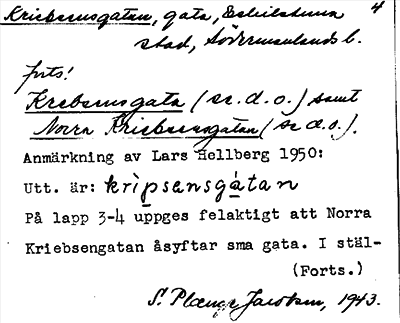 Kriebsensgatan, gata, Eskilstuna 4
stad, Södermanlands l.
forts!
Krebsensgata (se. d. o.) samt
Norra Kriebsensgatan (se d. o.).
Anmärkning av Lars Hellberg 1950:
Utt. är: krìpsensgátan
På lapp 3-4 uppges felaktigt att Norra
Kriebsengatan åsyftar sma gata. I stäl-
(Forts.)
S. Jacobsen, 1943.